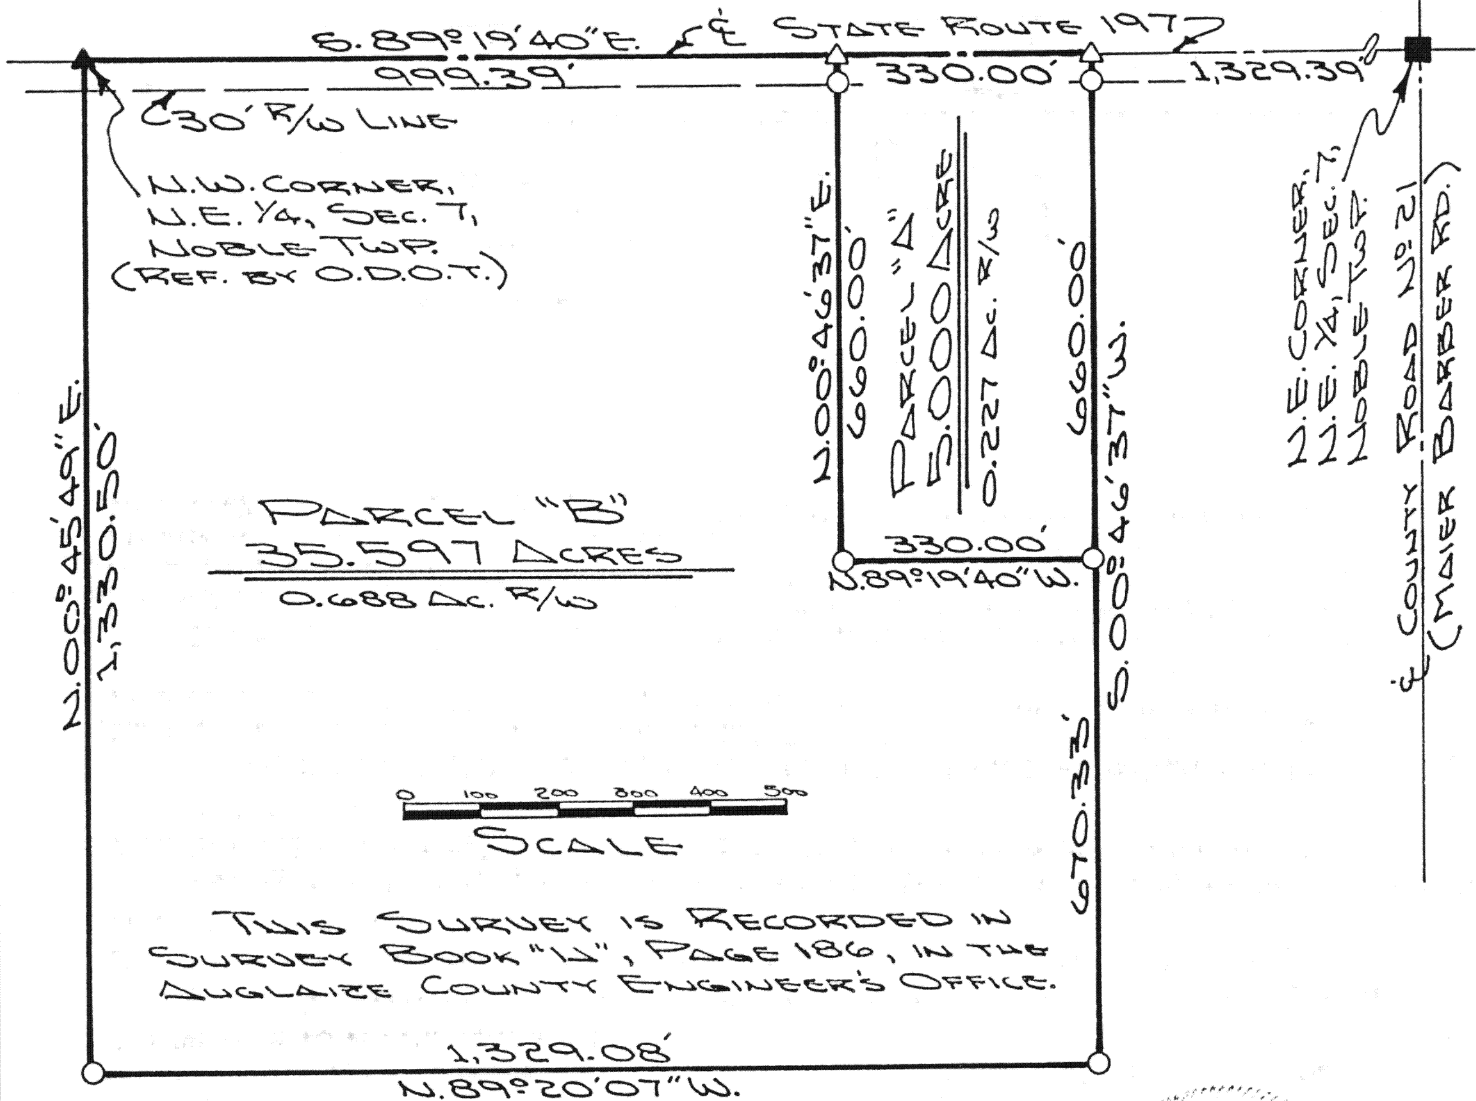 S. 89° 19' 40" E.
℄ STATE ROUTE 197
999.39'
330.00'
1,329.39'
30' R/W LINE
N.W. CORNER,
N.E. ¼, SEC. 7,
NOBLE TWP.
(REF. BY O.D.O.T.)
N. 00° 45' 49" E.
1,330.50'
N. 00° 46' 37" E.
660.00'
PARCEL "A"
5.000 ACRE
0.227 AC. R/W
660.00'
S. 00° 46' 37" W.
N.E. CORNER,
N.E. ¼, SEC. 7,
NOBLE TWP.
℄ COUNTY ROAD Nº 21
(MAIER BARBER RD.)
PARCEL "B"
35.597 ACRES
0.688 AC. R/W
330.00'
N. 89° 19' 40" W.
670.33'
0 100 200 300 400 500
SCALE
THIS SURVEY IS RECORDED IN
SURVEY BOOK , PAGE 186, IN THE
AUGLAIZE COUNTY ENGINEER'S OFFICE.
1,329.08'
N. 89° 20' 07" W.